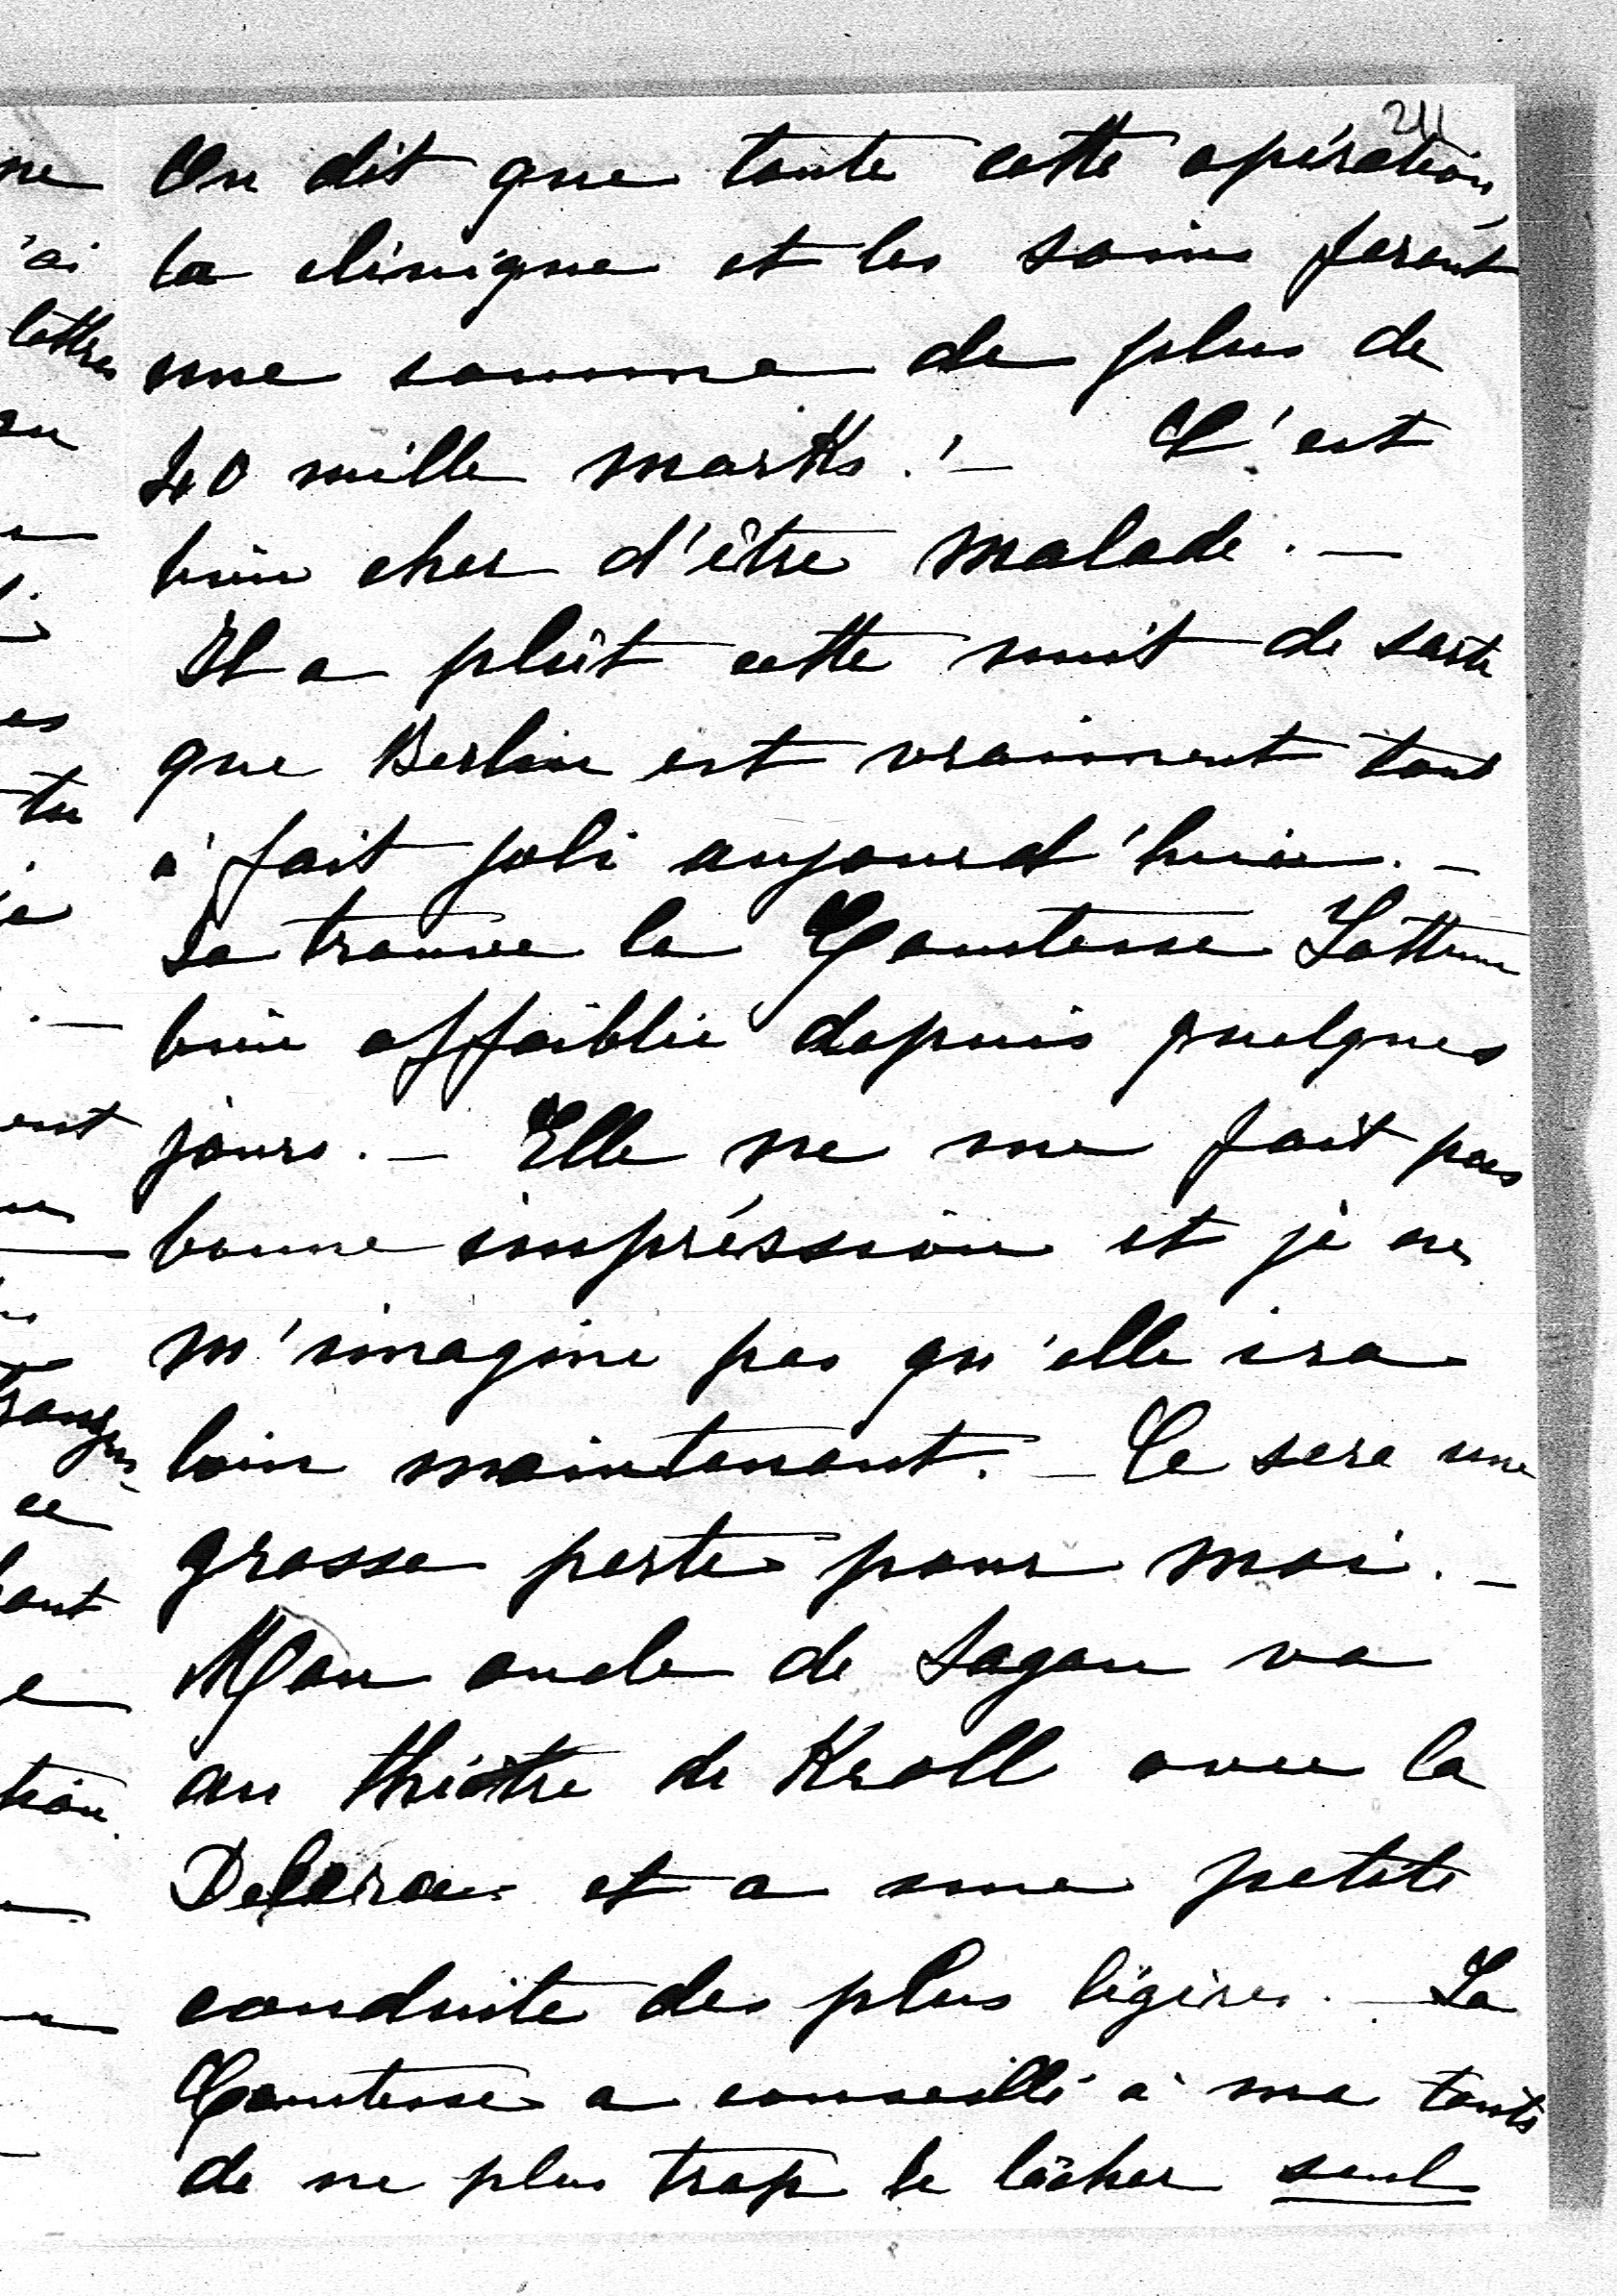 211
On dit que toute cette opération,
la clinique et les soins feront
une somme de plus de
40 mille marks ! — C'est
bien cher d'être malade. —
Il a plût cette nuit de sorte
que Berlin est vraiment tout
à fait joli aujourd'hui. —
Je trouve la Comtesse
bien affaiblie depuis quelques
jours. — Elle ne me fait pas
bonne impréssion et je ne
m'imagine pas qu'elle ira
loin maintenant. — Ce sera une
grosse perte pour moi. —
Mon oncle de Sagan va
au théâtre de Kroll avec la
et a une petite
conduite des plus légères. — La
Comtesse a conseillé à ma tante
de ne plus trop le lâcher seul